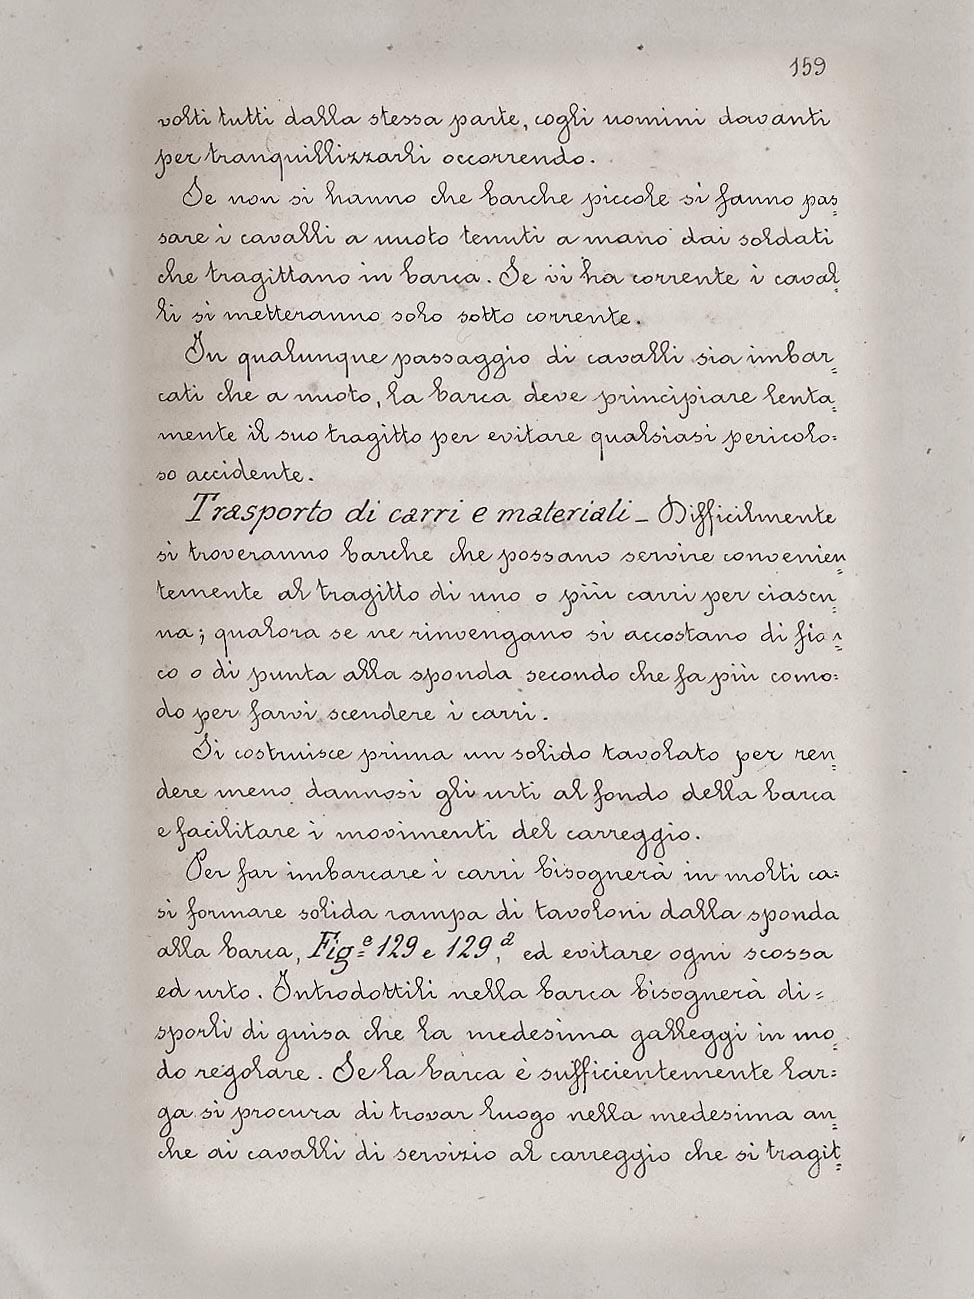 159
volti tutti dalla stessa parte, cogli uomini davanti
per tranquillizzarli occorrendo.
Se non si hanno che barche piccole si fanno pas=
sare i cavalli a nuoto tenuti a mano dai soldati
che tragittano in barca. Se vi ha corrente i caval=
li si metteranno solo sotto corrente.
In qualunque passaggio di cavalli sia imbar=
cati che a nuoto, la barca deve principiare lenta=
mente il suo tragitto per evitare qualsiasi pericolo=
so accidente.
Trasporto di carri e materiali – Difficilmente
si troveranno barche che possano servire convenien=
temente al tragitto di uno o più carri per ciascu=
na; qualora se ne rinvengano si accostano di fian=
co o di punta alla sponda secondo che fa più como=
do per farvi scendere i carri.
Si costruisce prima un solido tavolato per ren=
dere meno dannosi gli urti al fondo della barca
e facilitare i movimenti del carreggio.
Per far imbarcare i carri bisognerà in molti ca=
si formare solida rampa di tavoloni dalla sponda
alla barca, Fig.e 129 e 129,a ed evitare ogni scossa
ed urto. Introdottili nella barca bisognerà di=
sporli di guisa che la medesima galleggi in mo=
do regolare. Se la barca è sufficientemente lar=
ga si procura di trovar luogo nella medesima an=
che ai cavalli di servizio al carreggio che si tragit=